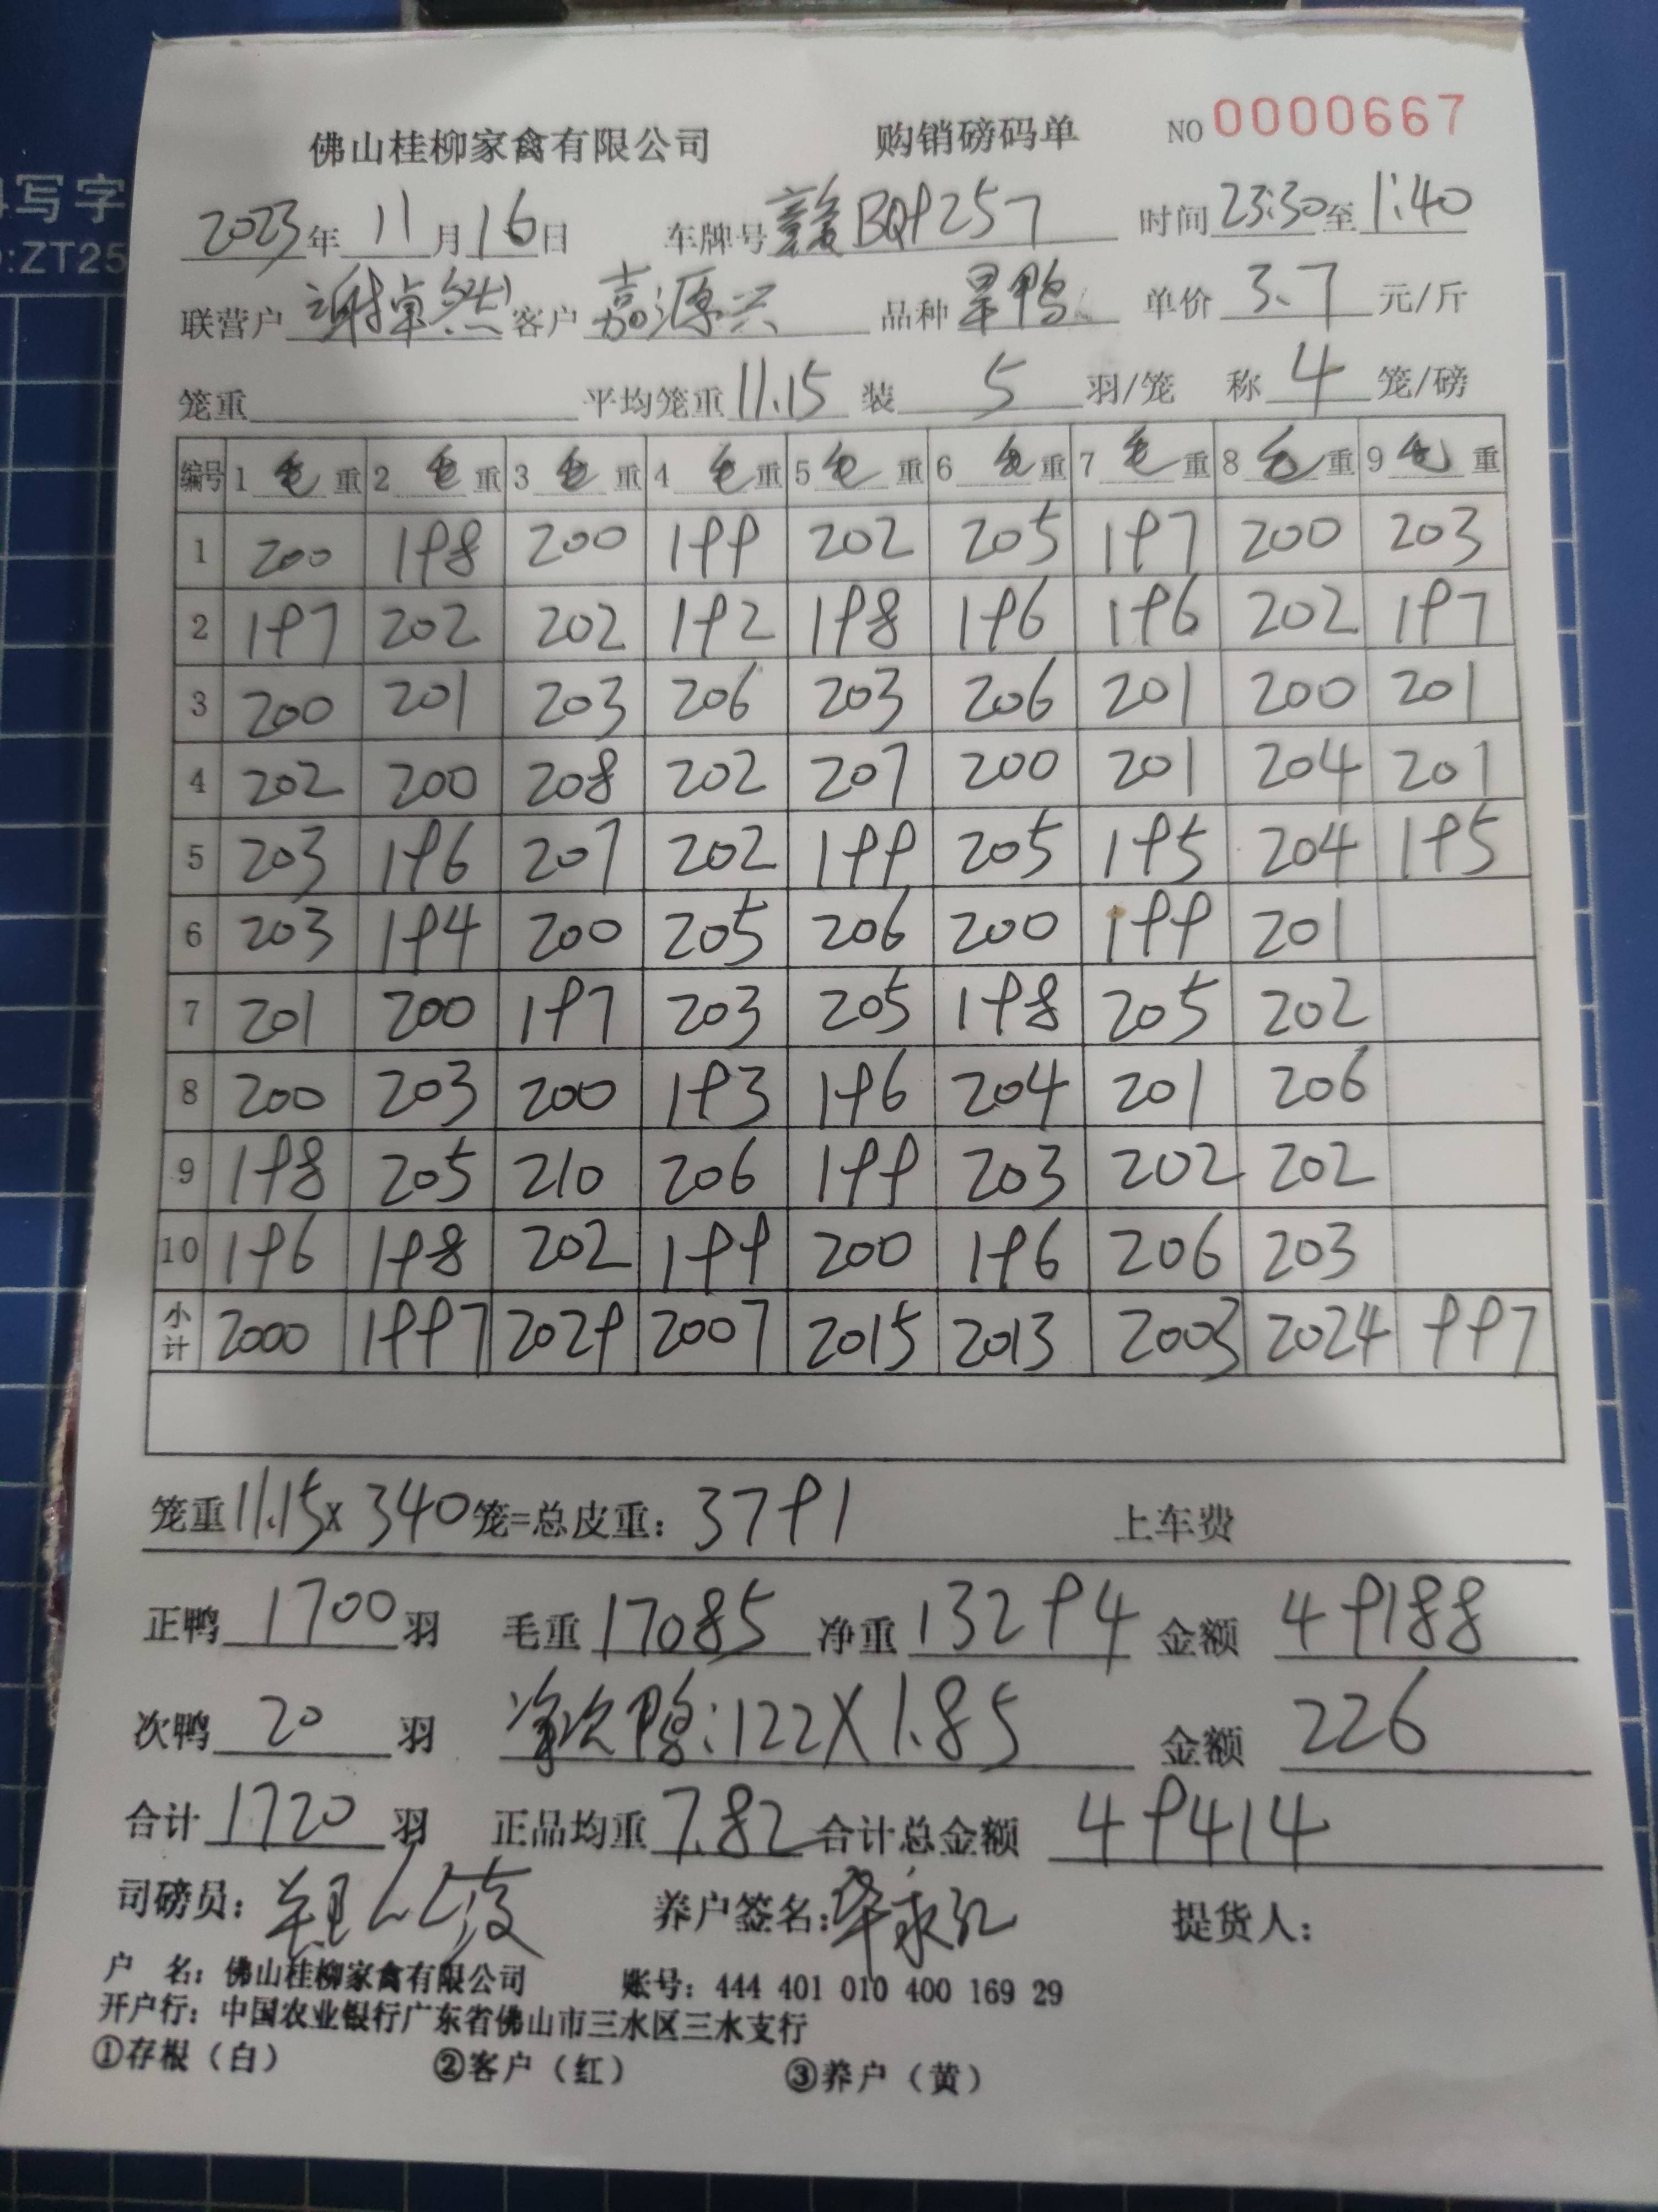 写字
ZT25
佛山桂柳家禽有限公司 购销磅码单 NO 0000667
2023年 11月16日 车牌号 赣BQ9257 时间23:30至1:40
联营户 谢掉然 客户 嘉源兴 品种 旱鸭 单价 3.7 元/斤
笼重 平均笼重 11.15 装 5 羽/笼 称 4 笼/磅
编号 1 毛 重 2 毛 重 3 毛 重 4 毛 重 5 毛 重 6 毛 重 7 毛 重 8 毛 重 9 毛 重
1 200 198 200 199 202 205 197 200 203
2 197 202 202 192 198 196 196 202 197
3 200 201 203 206 203 206 201 200 201
4 202 200 208 202 207 200 201 204 201
5 203 196 207 202 199 205 195 204 195
6 203 194 200 205 206 200 199 201
7 201 200 197 203 205 198 205 202
8 200 203 200 193 196 204 201 206
9 198 205 210 206 199 203 202 202
10 196 198 202 199 200 196 206 203
小计 2000 1997 2029 2007 2015 2013 2003 2024 997
笼重11.15x 340笼=总皮重: 3791 上车费
正鸭 1700 羽 毛重 17085 净重 13294 金额 49188
次鸭 20 羽 次鸭:122X1.85 金额 226
合计 1720 羽 正品均重 7.82 合计总金额 49414
司磅员: 养户签名: 提货人:
户 名: 佛山桂柳家禽有限公司 账号: 444 401 010 400 169 29
开户行: 中国农业银行广东省佛山市三水区三水支行
①存根(白) ②客户(红) ③养户(黄)